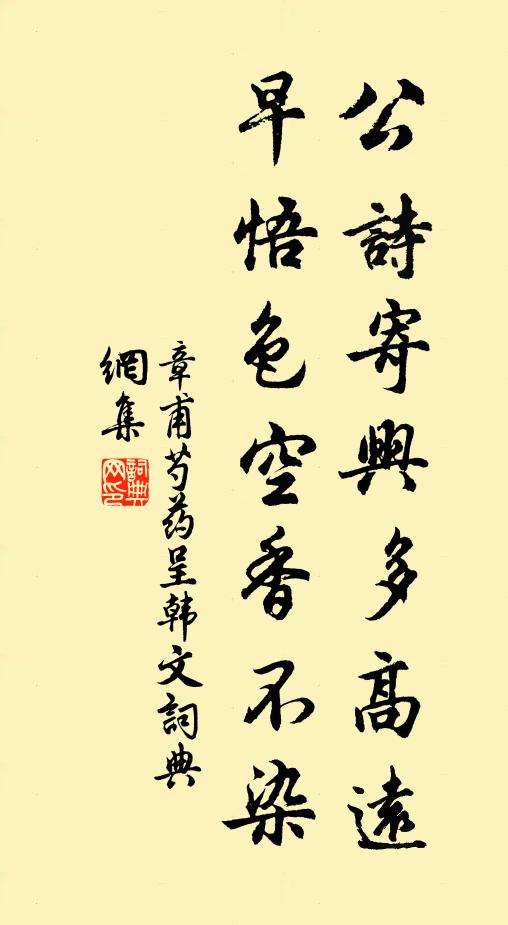 公詩寄興多高遠
早悟色空香不染
章甫芍药呈韩文詞典
網集
詞典
网印